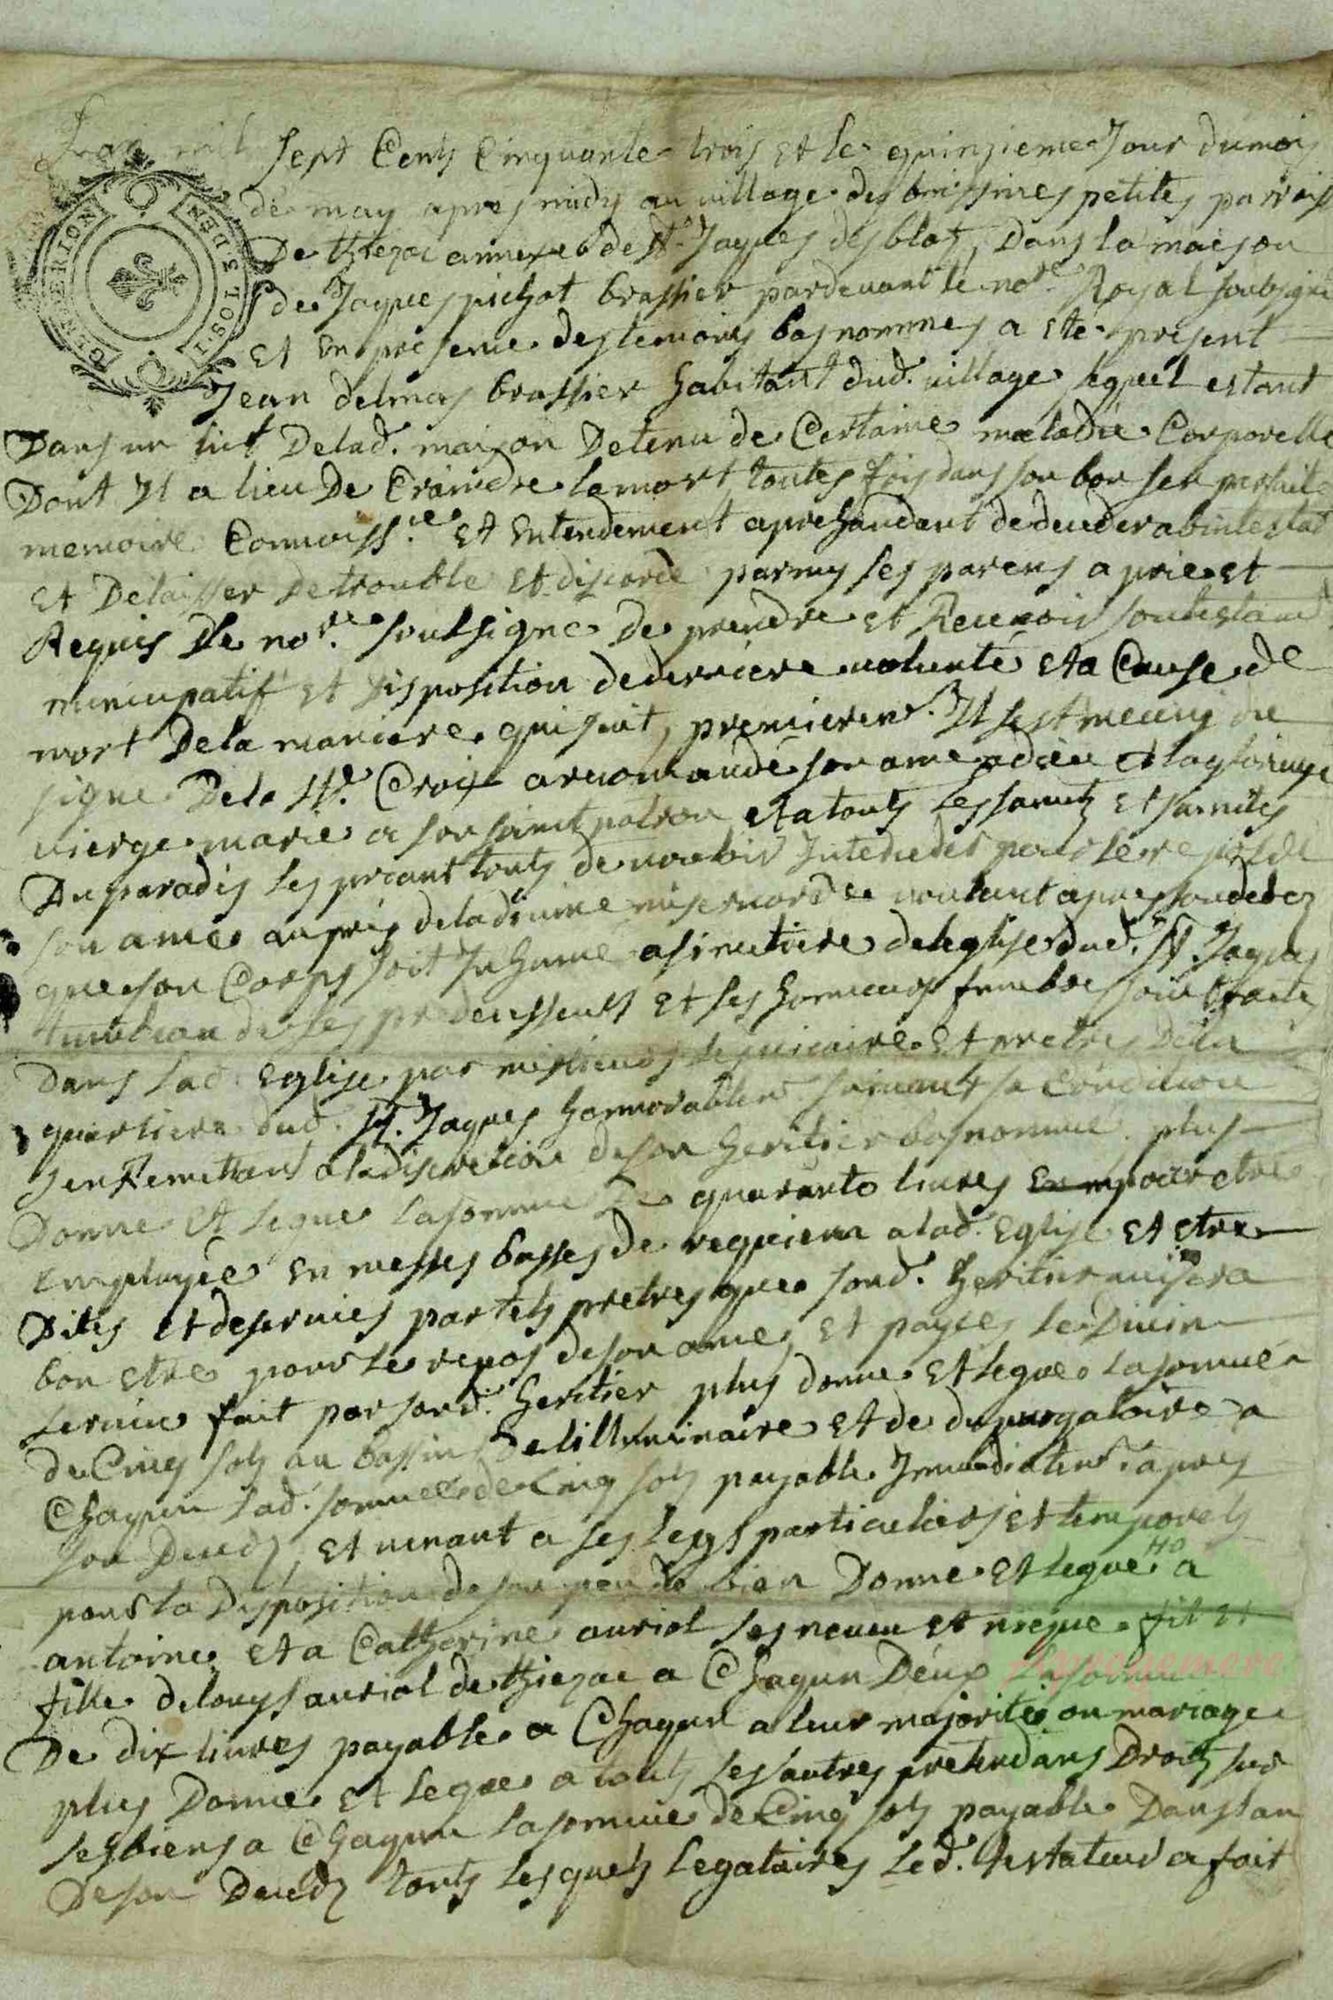 Lan mil sept Cents Cinquante trois et le quinzieme Jour dumois
de may apres midy au village des boissines petites parroisse
De thiezac annexe de St. Jaques desblatz, Dans la maison
de Jaques pichot brassier pardevant le nore. Royal soubsigné
Et En presence des temoins bas nommes a ete present
GEN D'AUVERION
DEN S TOSI
Jean delmas brassier habitant dud. village lequel estant
Dans un lict Delad. maison Detenu de Certaine maladie Corporelle
Dont Il a lieu De Craindre lamort, toutes fois dans son bon sen parfaite
memoire Connoissce. Et Entendement aprehandant dedeceder abintestat
Et Delaisser de trouble Et discorde parmy ses parens a prie et
Requis Le nore. soubsigne De prendre Et Recevoir sontestamt.
nuncupatif Et Disposition dederniere volunté Eta Cause de
mort Dela maniere qui suit, premierem. Il sest meuny du
signe Dela Ste. Croix arecomandé son ame adieu Etaglorieuse
vierge marie a son saint patron Etatouts les saints Et saintes
Du paradis les priant touts de vouloir Interceder pour le repos de
son ame aupres deladivine misericorde voulant apres son deces
queson Corps soit Inhumé asimetiere deleglise dud. St. Jaques
tumbeau de ses predecesseurs Et ses honneurs funebres soint faits
Dans lad. Eglise par messieurs les vicaire Et pretres Dela
quartiere dud. St. Jaques honnorablem. suivant sa Condition
senRemettant aladiscretion deson heritier bas nommé plus
Donne Et Legue lasomme De quarante livres pour etre
Employée En messes basses de requiem alad. Eglise Et etre
Dites Et deservies par tels pretres que sond. heritier avisera
bon Etre pour le repos deson ame, Et payées le Divin
service fait par sond. heritier plus donne Et legue lasomme
de Cinq sols au bassin De lilluminaire Et de dupurgatoire a
Chaqun lad. somme de Cinq sols payable Immediatem. apres
son Deces, Et venant a ses legs particuliers Et temporels
pour la Disposition de son peu de bien Donne Et legue a
antoine Eta Catherine auriol ses neveu Et niepce fil Et
fille delouys auriol de thiezac a Chaqun Deux lasomme
De dix livres payable a Chaqun a leur majorité ou mariage
plus Donne Et Legue a touts ses autres pretendans Droits sur
ses biens a Chaqun lasomme de Cinq sols payable Dans lan
De son Deces touts lesquels legataires led. testateur a fait
Aprenemere